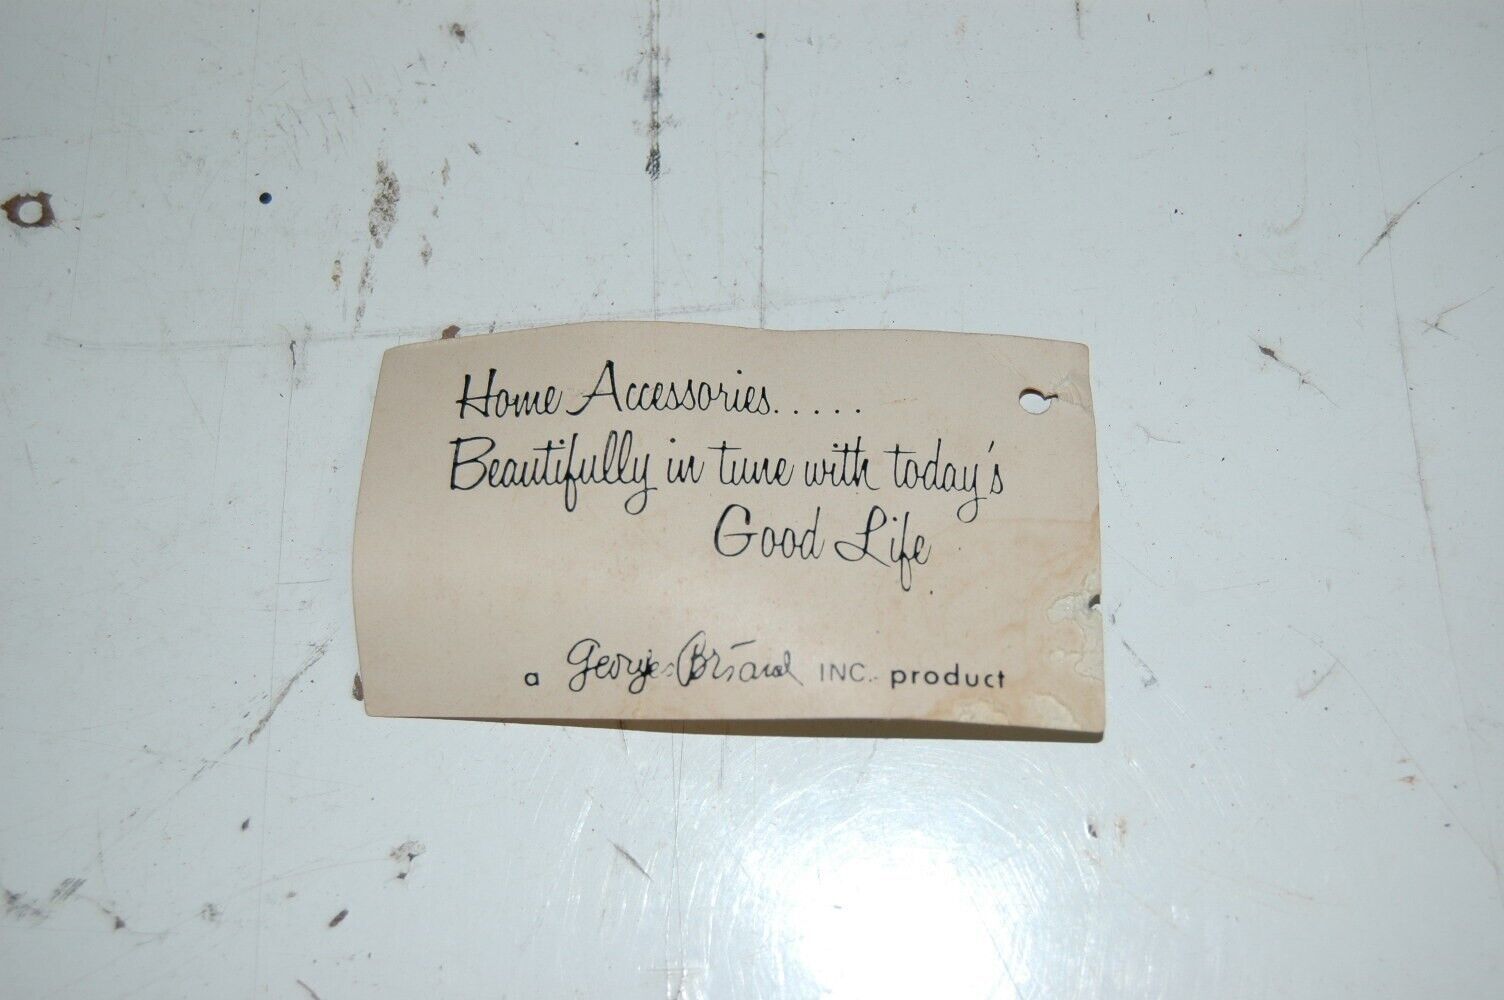 Home Accessories.....
Beautifully in tune with today's
Good Life
a Georges Briard INC. product